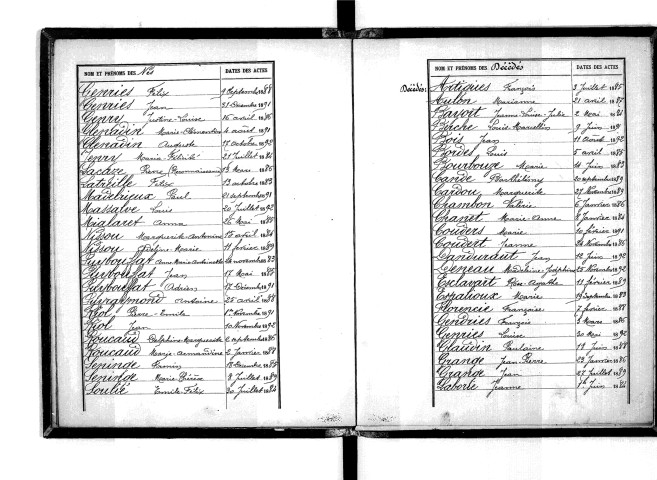 NOM ET PRÉNOMS DES Nés DATES DES ACTES
Genries Félix 9 Septembre 1888
Genries Jean 21 Décembre 1891
Genry Justine Louise 16 avril 1886
Glenadin Marie Clémentine 4 août 1891
Glenadin Auguste 17 octobre 1892
Jenry Marie Félicité 21 Juillet 1884
Lacaze Pierre (Reconnaissance) 13 Mars 1886
Latreille Félix 13 octobre 1883
Madelrieux Paul 21 septembre 1891
Massalve Louis 20 Juillet 1892
Mialaret Anna 20 Mai 1888
Nissou Marguerite Antonine 18 avril 1884
Nissou Adeline Marie 11 février 1889
Puybouffat Anne Marie Antoinette 24 novembre 1883
Puybouffat Jean 17 Mai 1885
Puybouffat Adrien 17 Décembre 1891
Puyraymond Antoine 25 avril 1888
Riol Pierre Emile 1er Novembre 1891
Riol Jean 10 Novembre 1892
Roucaud Delphine Marguerite 2 septembre 1886
Roucaud Marie Armandine 2 Janvier 1888
Seninge Firmin 18 Décembre 1885
Seninge Marie Pierre 8 Juillet 1889
Soulié Emile Félix 30 Juillet 1884
NOM ET PRÉNOMS DES Décédés DATES DES ACTES
Décédés: Artigues François 3 Juillet 1885
Aulon Marianne 21 avril 1885
Bayott Jeanne Louise Julie 2 Mai 1884
Berche Louis Marcellin 9 Juin 1891
Bois Jean 11 Août 1892
Bordes Louis 5 avril 1886
Bourboux Marie 14 Juin 1883
Cande Barthélémy 20 septembre 1889
Cardou Marguerite 27 Novembre 1889
Chambon Valérie 6 Janvier 1886
Chanet Marie Anne 8 Janvier 1884
Couders Marie 10 février 1891
Coudert Jeanne 24 Novembre 1886
Dandurant Jean 12 Juin 1892
Deneau Madeleine Joséphine 25 Novembre 1892
Esclavart Rose Agathe 11 février 1889
Espalioux Marie 19 septembre 1883
Florencie Françoise 7 février 1888
Gendries François 3 Mars 1886
Genries Louise 30 Mai 1892
Glaudin Pauline 19 Juin 1888
Grange Jean Pierre 23 Janvier 1886
Grange Jean 27 Juillet 1889
Laborie Jeanne 1er Juin 1884